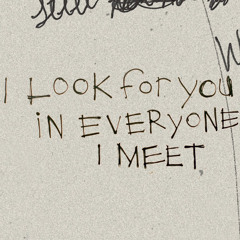 I LOOK FOR YOU
IN EVERYONE
I MEET